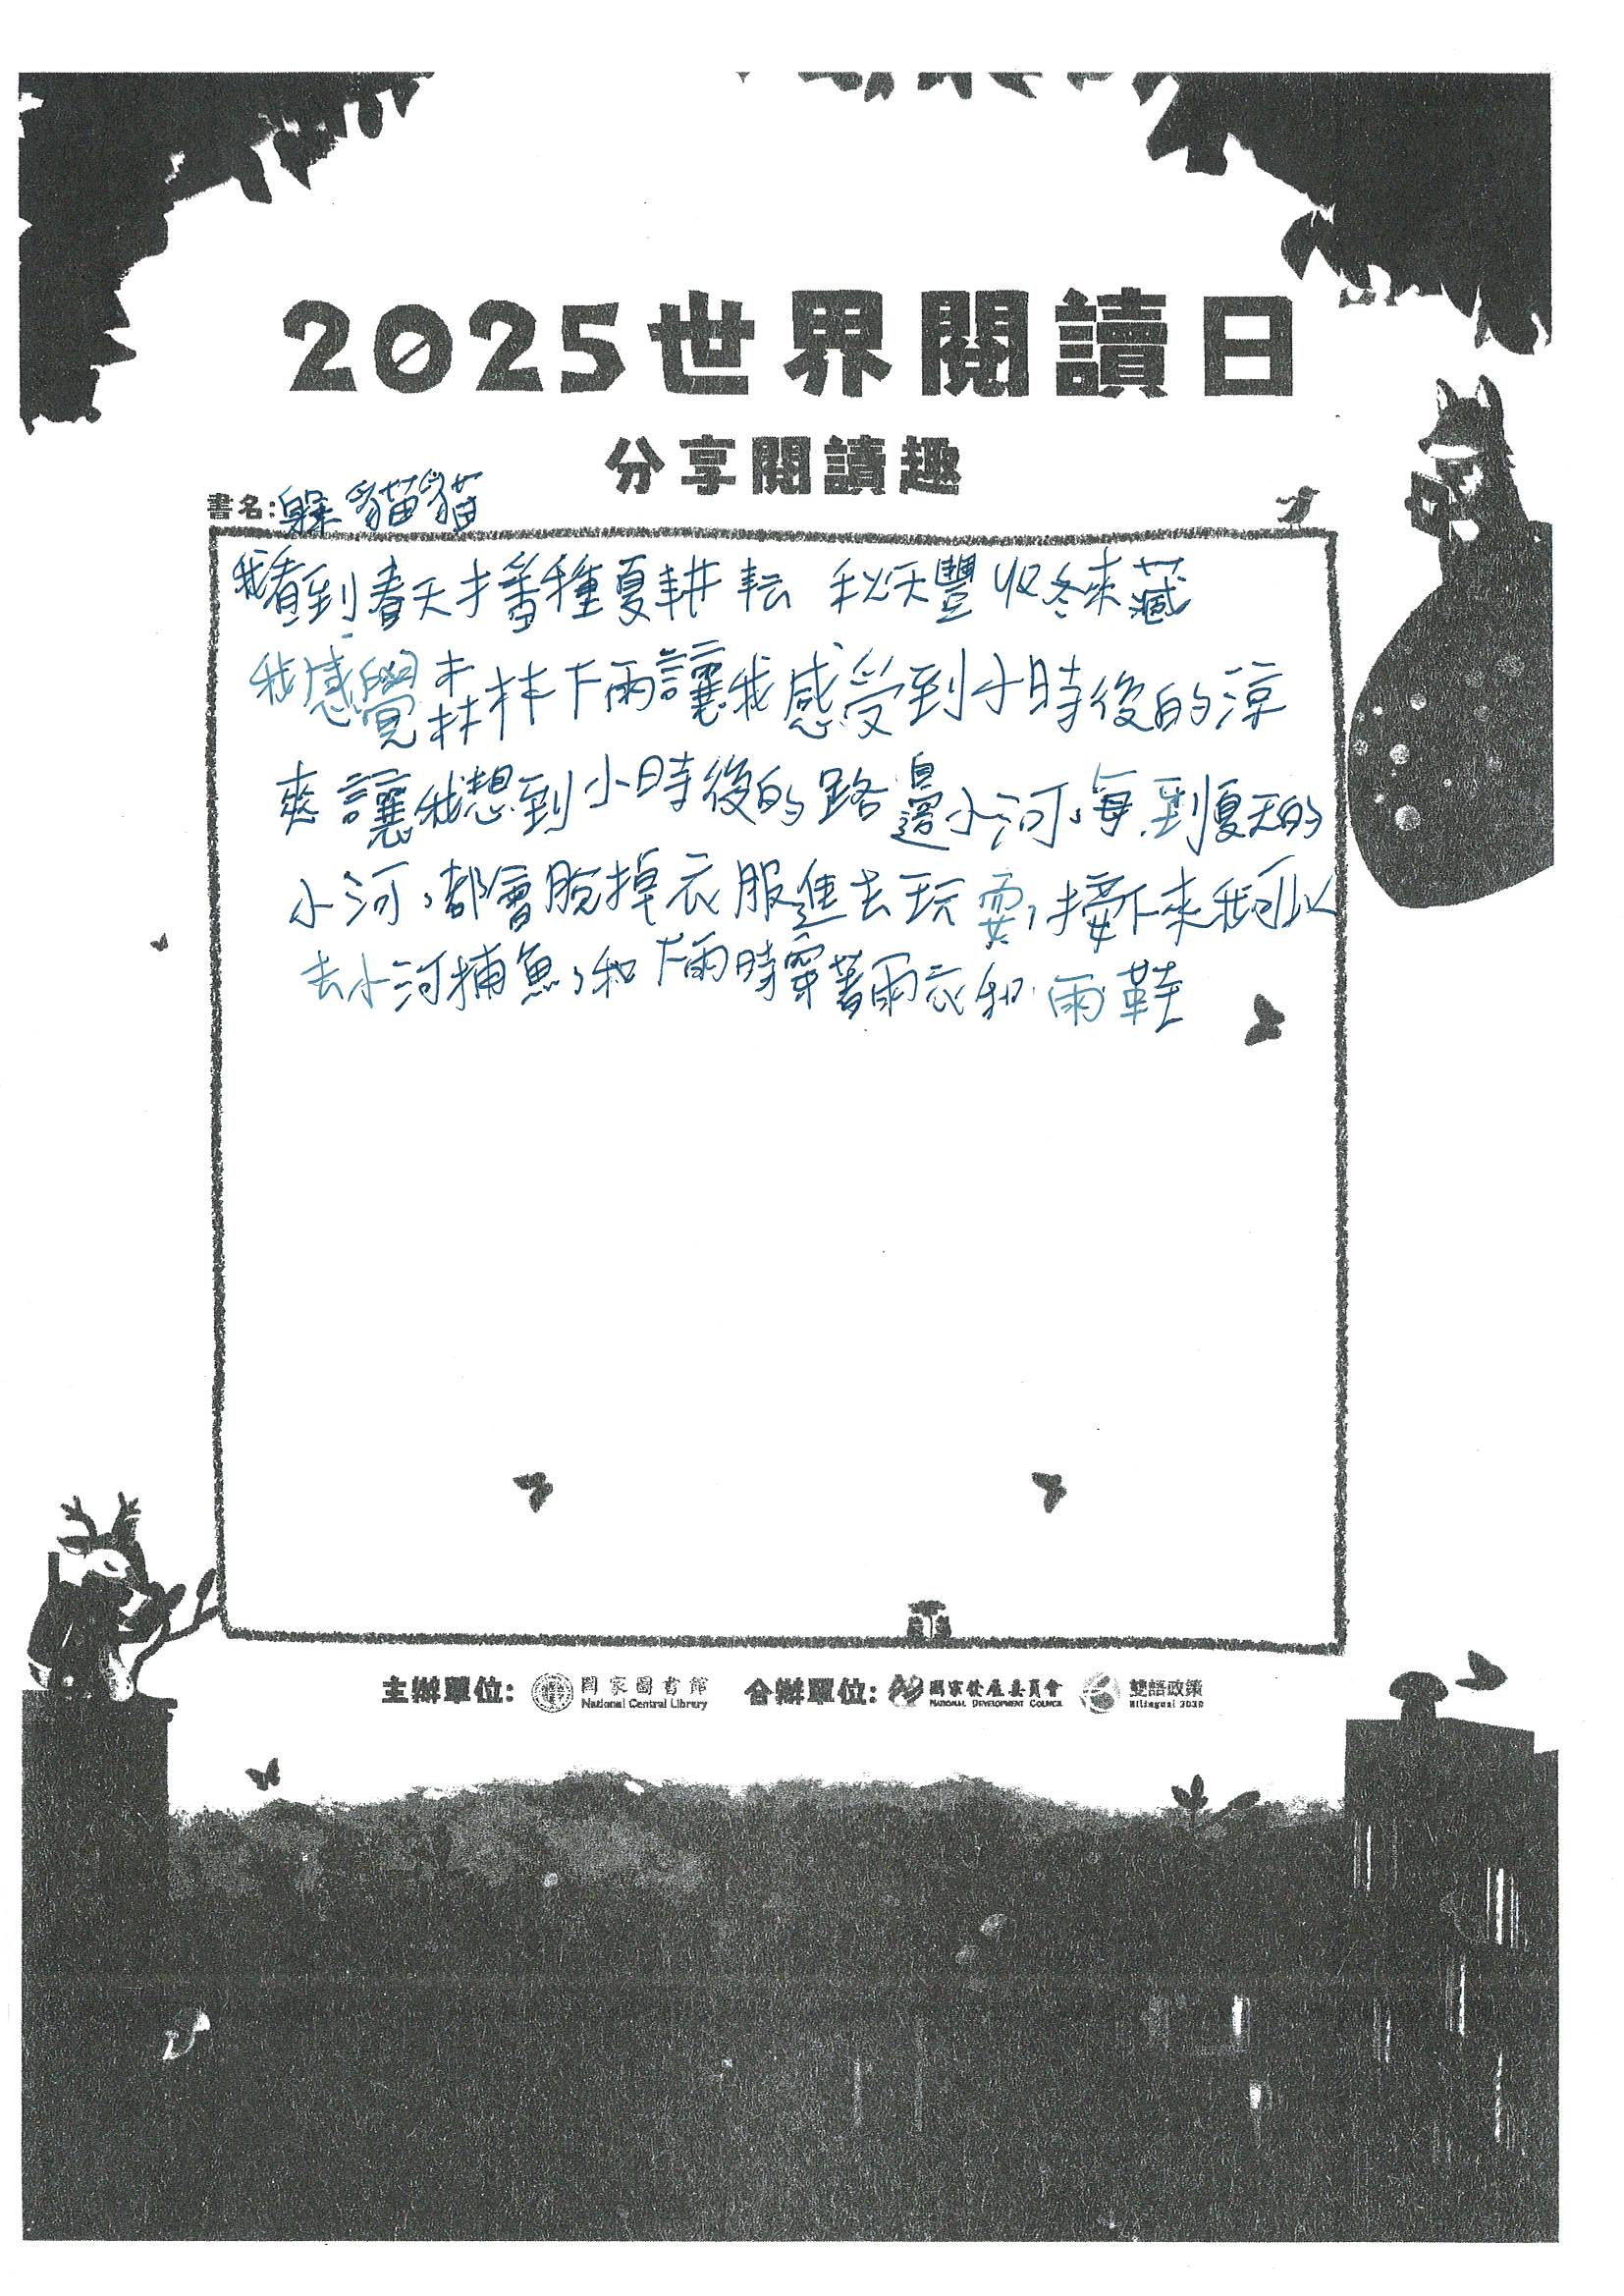 2025世界閱讀日
分享閱讀趣
書名:躲貓貓
我看到春天播種夏耕耘 秋天豐收冬來藏
我感覺森林下雨讓我感受到小時後的涼
爽讓我想到小時後的路邊小河,每到夏天的
小河,都會脫掉衣服進去玩耍,接下來我可以
去小河捕魚,和下雨時穿著雨衣和雨鞋
主辦單位: 國家圖書館 National Central Library 合辦單位: 國家發展委員會 NATIONAL DEVELOPMENT COUNCIL 雙語政策 Bilingual 2030